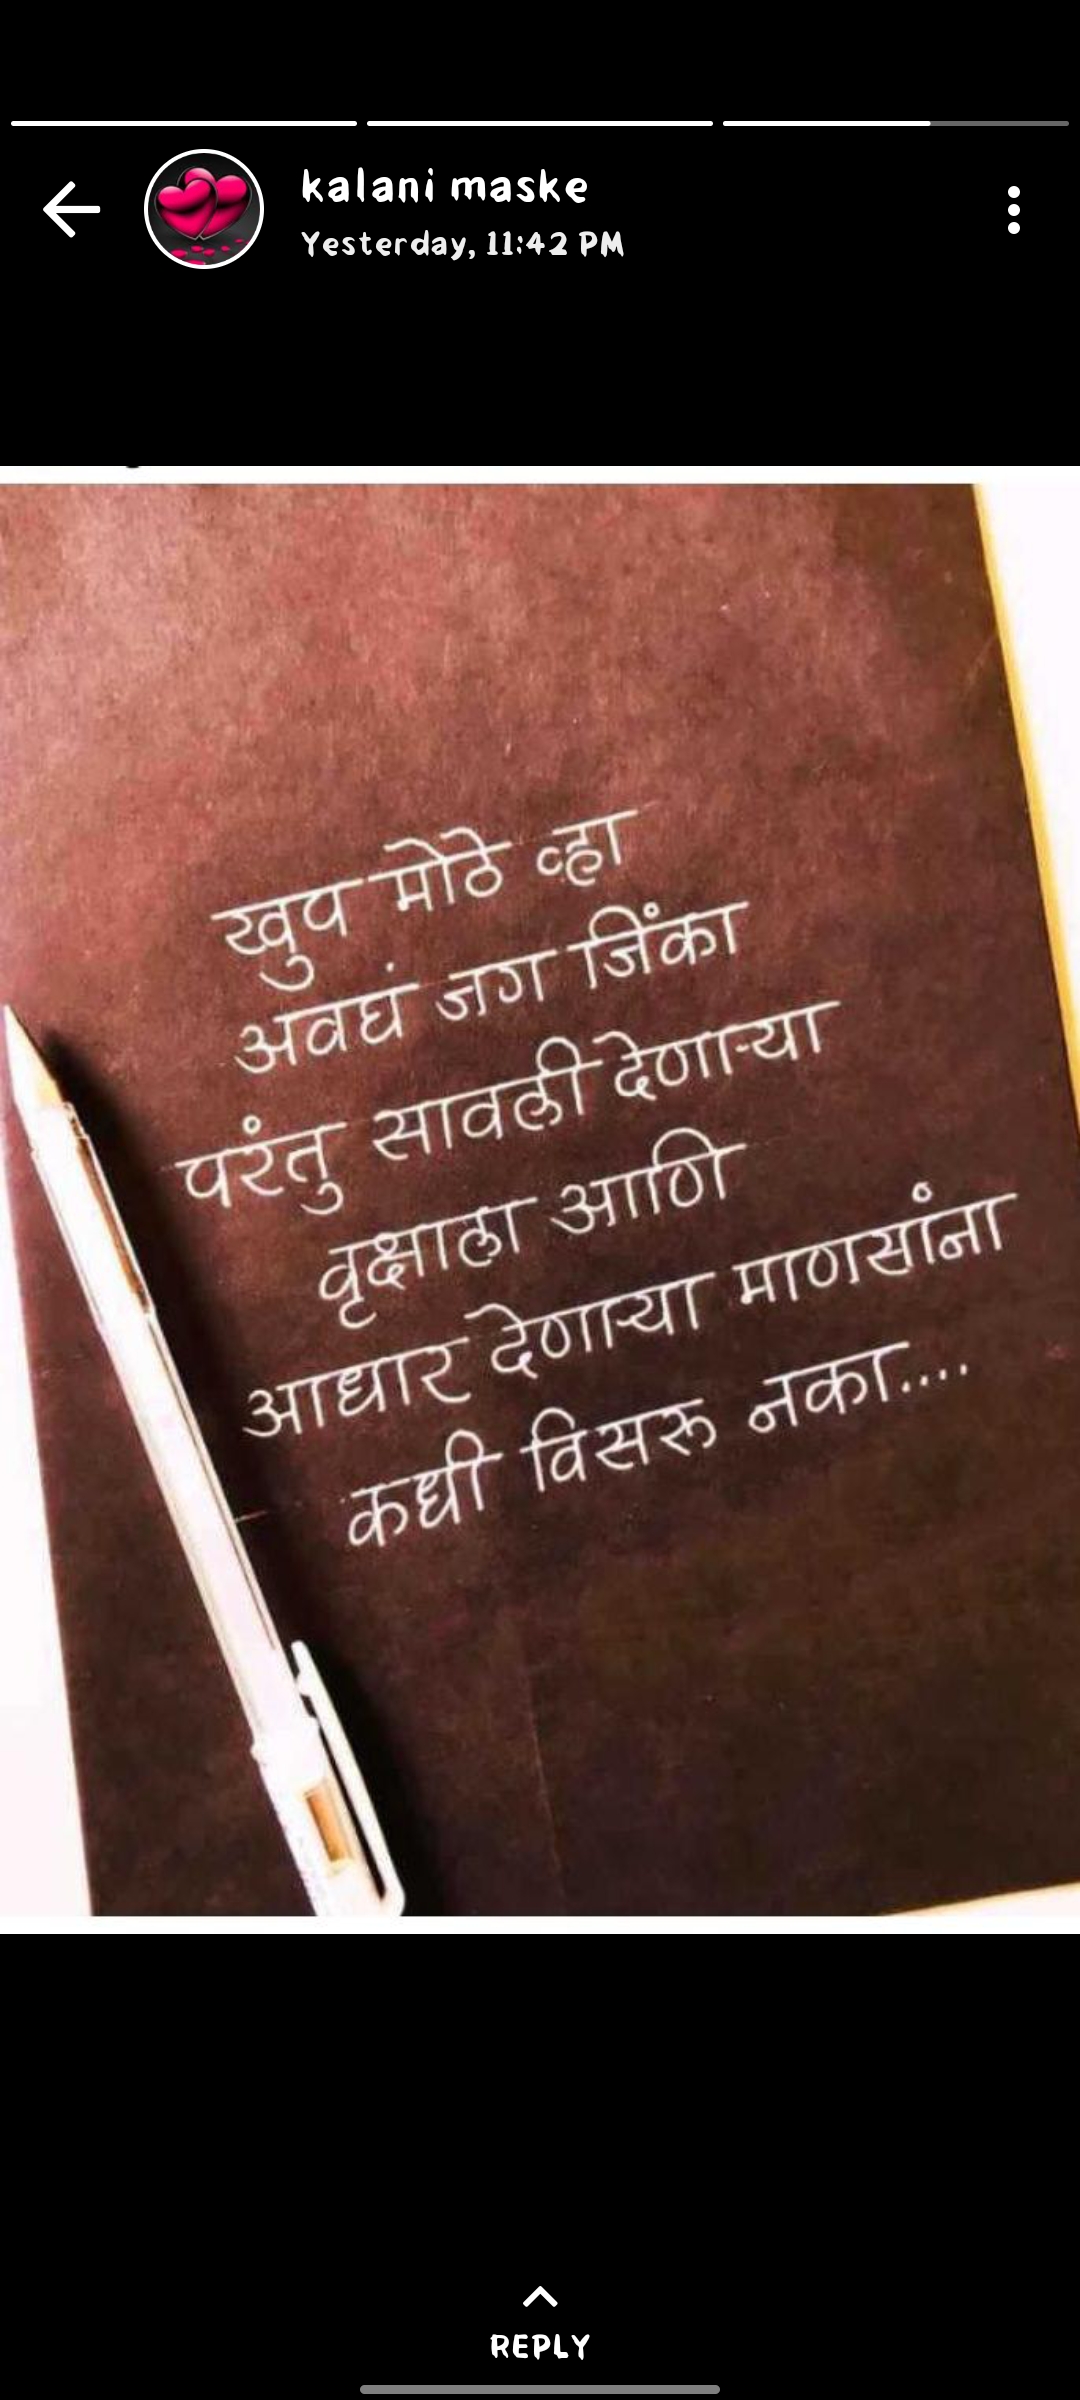 kalani maske
Yesterday, 11:42 PM
खुप मोठे व्हा
अवघं जग जिंका
परंतु सावली देणाऱ्या
वृक्षाला आणि
आधार देणाऱ्या माणसांना
कधी विसरू नका....
REPLY